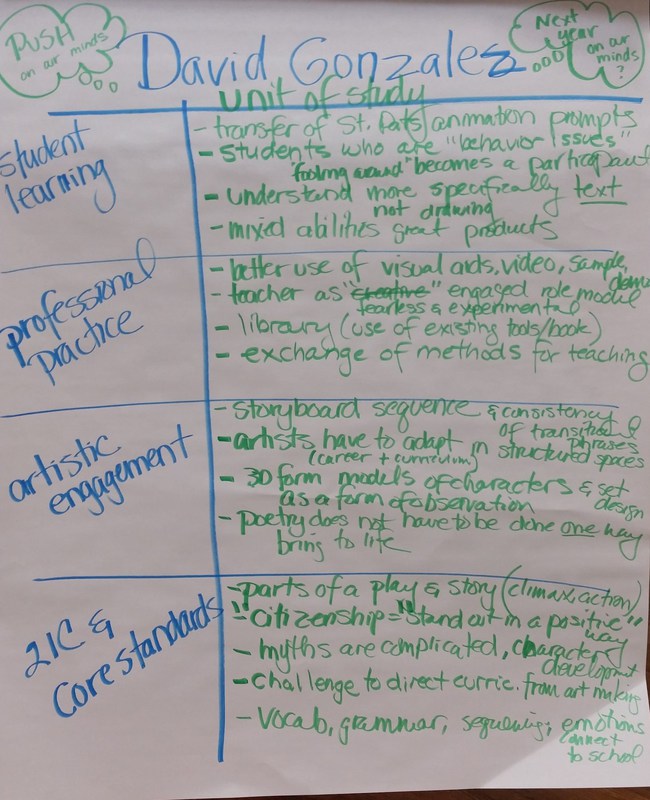 PUSH
on our minds
David Gonzalez
Next
year
on our
minds
?
unit of study
student
learning
- transfer of St. Pats animation prompts
- students who are "behavior issues"
"fooling around" becomes a participant
- understand more specifically text
not drawing
- mixed abilities great products
professional
practice
- better use of visual aids, video, sample,
demo
- teacher as "creative" engaged role model
fearless & experimental
- library (use of existing tools/book)
- exchange of methods for teaching
artistic
engagement
- storyboard sequence & consistency
of transitional
phrases
- artists have to adapt in structured spaces
(career + curriculum)
- 3D form models of characters & set
design
as a form of observation
- poetry does not have to be done one way
bring to life
21C &
core standards
- parts of a play & story (climax, action)
- "citizenship = "stand out in a positive"
way
- myths are complicated, character
development
- challenge to direct curric. from art making
- vocab, grammar, sequencing, emotions
connect
to school